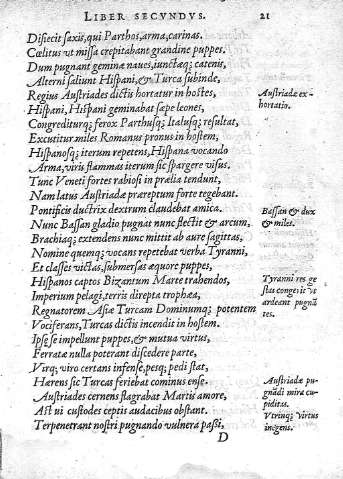 LIBER SECVNDVS. 21
Disiecit saxis, qui Parthos, arma, carinas.
Cœlitus ut missa crepitabant grandine puppes,
Dum pugnant geminæ naues, iunctæq; catenis,
Alterni saliunt Hispani, & Turcæ subinde,
Regius Austriades dictis hortatur in hostes,
Austriadæ ex-
hortatio.
Hispani, Hispani geminabat sæpe leones,
Congrediturq; ferox Parthusq; Italusq; resultat,
Excutitur miles Romanus pronus in hostem,
Hispanosq; iterum repetens, Hispana vocando
Arma, viris flammas iterum sic spargere visus.
Tunc Veneti fortes rabiosi in prælia tendunt,
Nam latus Austriadæ præreptum forte tegebant.
Pontificis ductrix dextrum claudebat amica.
Bassan & dux
& miles.
Nunc Bassan gladio pugnat nunc flectit & arcum,
Brachiaq; extendens nunc mittit ab aure sagittas,
Nomine quemq; vocans repetebat verba Tyranni,
Et classes victas, submersas æquore puppes,
Hispanos captos Bizantum Marte trahendos,
Tyranni res ge
stas congerit vt
ardeant pugnã
tes.
Imperium pelagi, terris direpta trophæa,
Regnatorem Asiæ Turcam Dominumq; potentem
Vociferans, Turcas dictis incendit in hostem.
Ipse se impellunt puppes, & mutua virtus,
Ferratæ nulla poterant discedere parte,
Virq; viro certans infense, pesq; pedi stat,
Hærens sic Turcas feriebat cominus ense.
Austriadæ pu-
gnãdi mira cu-
piditas.
Austriades cernens flagrabat Martis amore,
Ast ui custodes ceptis audacibus obstant.
Vtrinq; virtus
ingens.
Terpenetrant nostri pugnando vulnera passi,
D